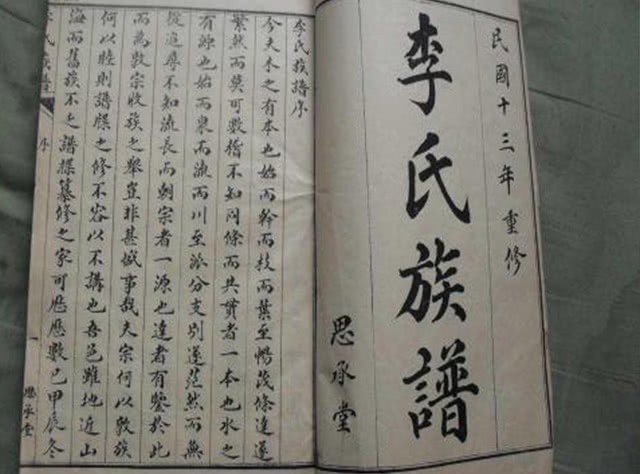 民國十三年重修
李氏族譜
思承堂
李氏族譜序
今夫木之有本也始而幹而枝而葉至暢茂條達遂
繁然而莫可數偕不知同條而共貫者一本也水之
有源也始而泉而流而川至派分支別遂茫然而無
從追尋不知流長而朝宗者一源也達者有鑒於此
而為敬宗收族之舉豈非甚盛事哉夫宗何以敬族
何以睦則譜牒之修不容以不講也吾邑雖地近山
海而舊族不乏譜牒纂修之家可歷歷數已甲辰冬
李氏族譜
序
一
思承堂